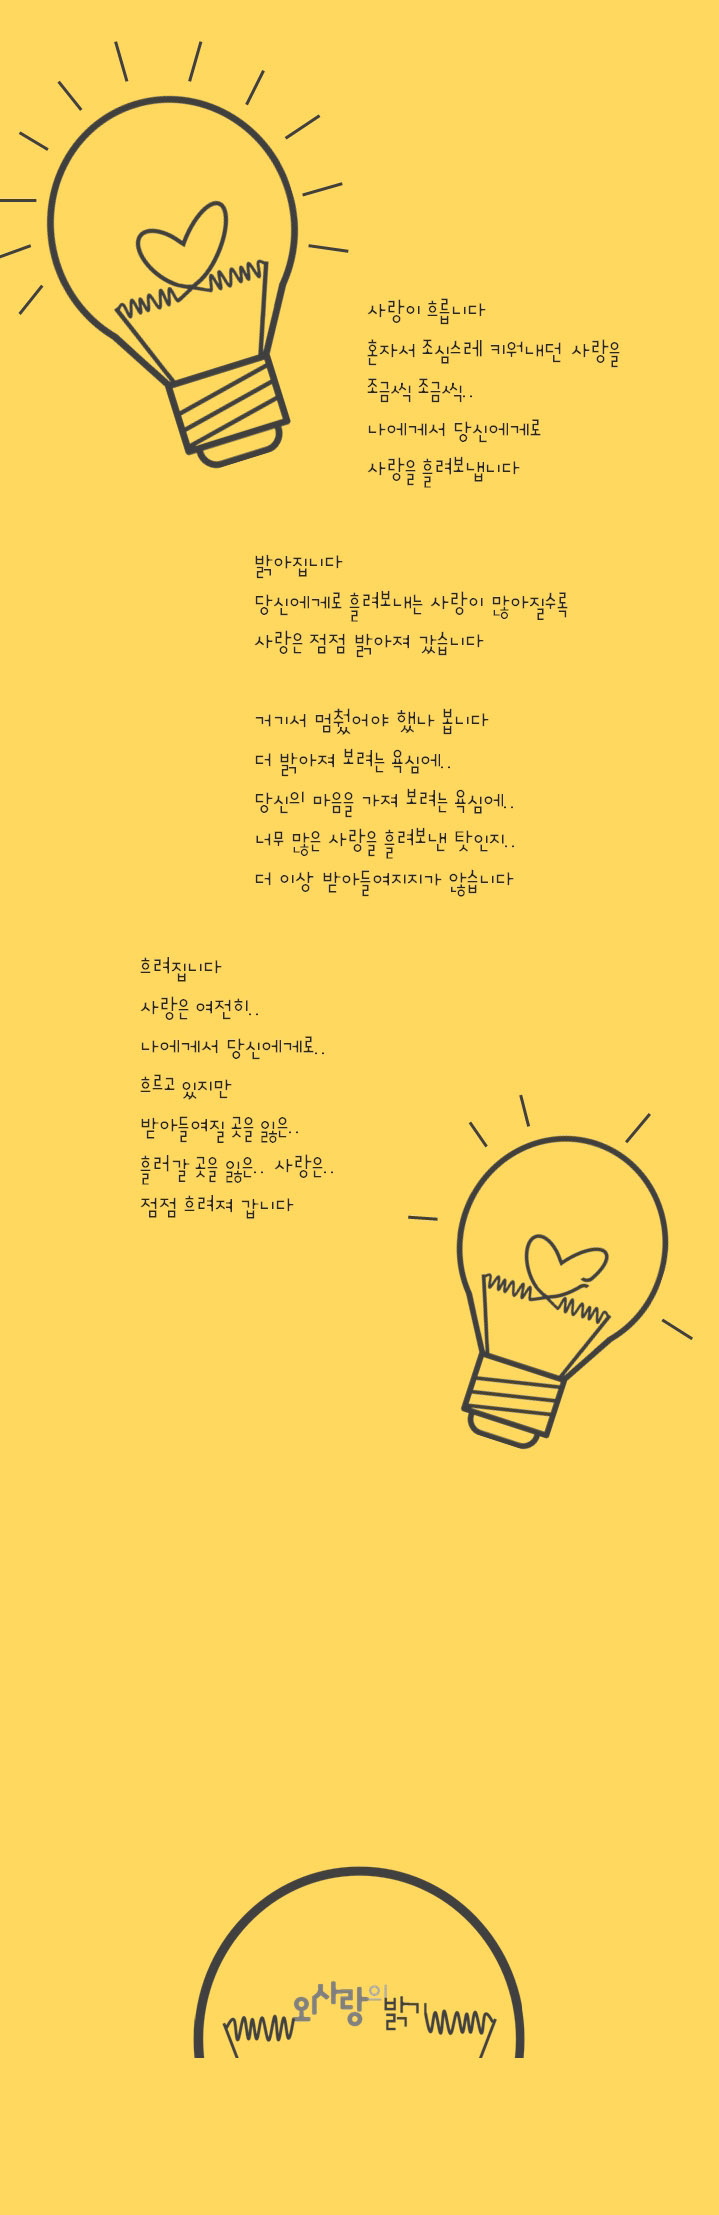 사랑이 흐릅니다
혼자서 조심스레 키워내던 사랑을
조금씩 조금씩..
나에게서 당신에게로
사랑을 흘려보냅니다
밝아집니다
당신에게로 흘려보내는 사랑이 많아질수록
사랑은 점점 밝아져 갔습니다
거기서 멈췄어야 했나 봅니다
더 밝아져 보려는 욕심에..
당신의 마음을 가져 보려는 욕심에..
너무 많은 사랑을 흘려보낸 탓인지..
더 이상 받아들여지지가 않습니다
흐려집니다
사랑은 여전히..
나에게서 당신에게로..
흐르고 있지만
받아들여질 곳을 잃은..
흘러갈 곳을 잃은.. 사랑은..
점점 흐려져 갑니다
외사랑의 밝기